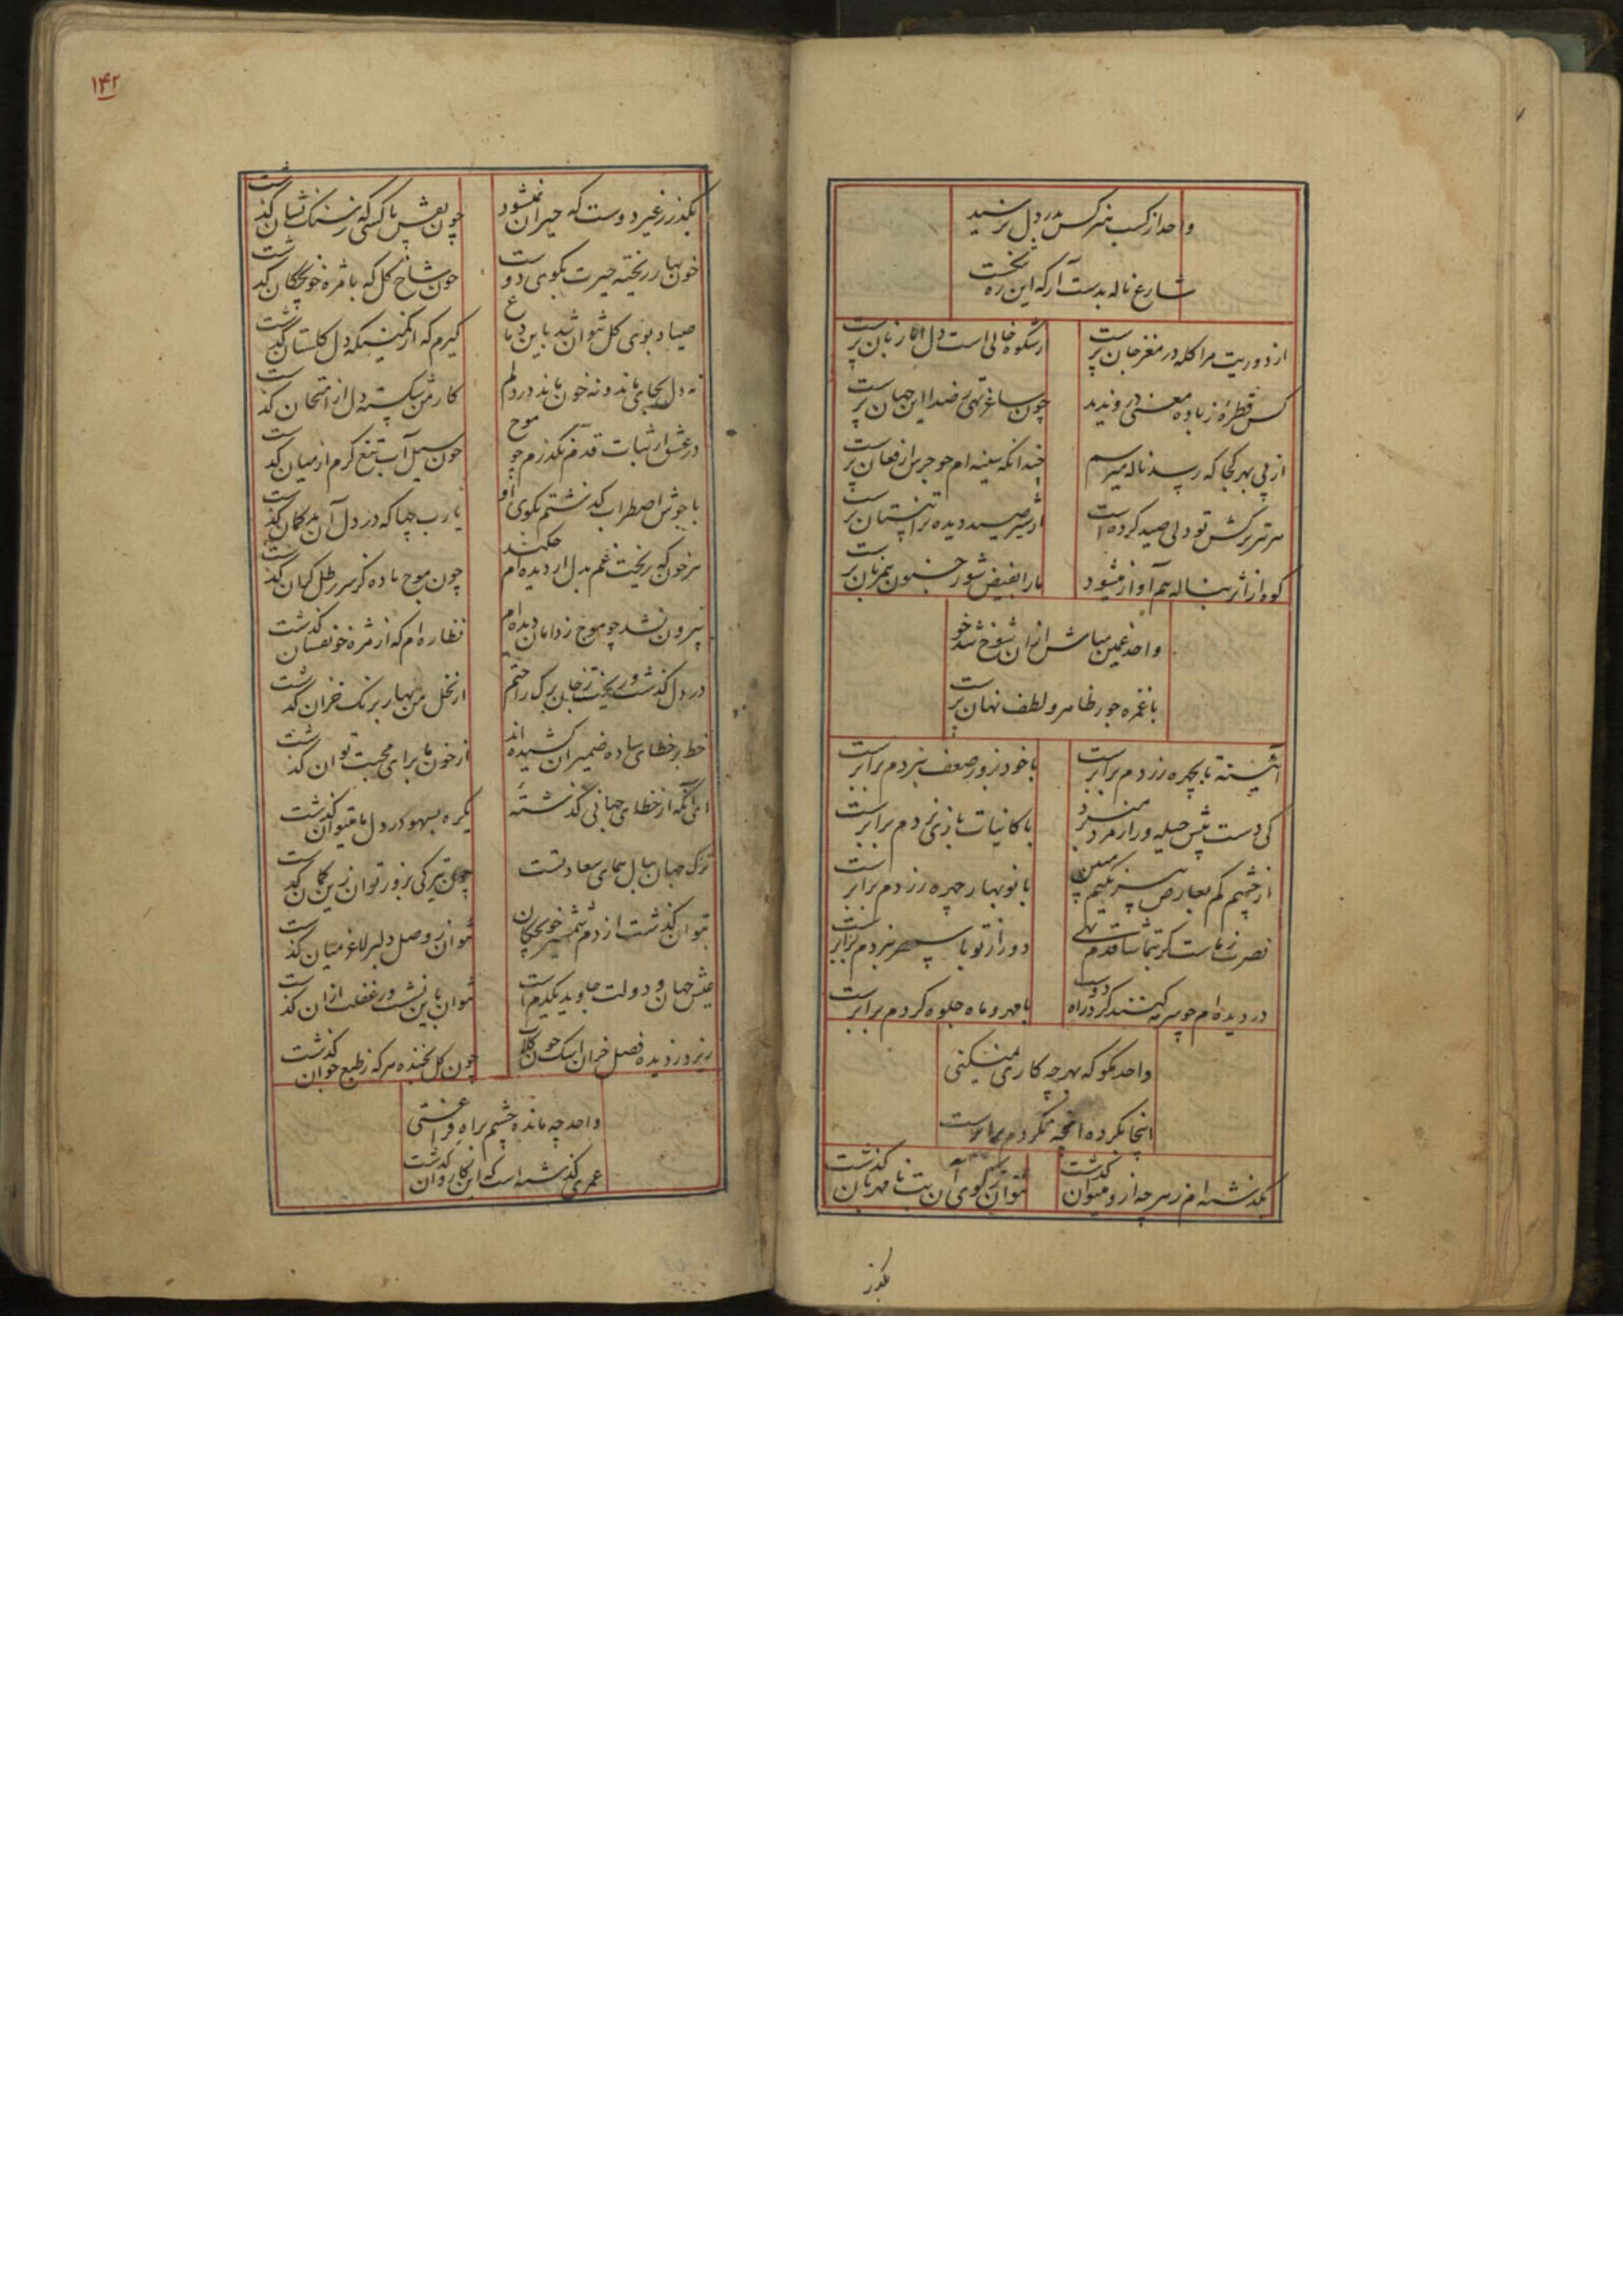 واحد از کسب هنر کس بدر دل نرسید
شارع ناله بدست آر که این ره
از دوریت مرا کله در مغز جان پرست
از شکوه خالی است دل اما زبان پرست
کس قطرهٔ ز باده معنی درو ندید
چون ساغر تهی ز صدا این جهان پرست
از پی بهر کجا که رسد ناله میرسم
چندانکه سینه ام چو جرس از فغان پرست
هر تیر ترکش تو دلی صید کرده است
از شیر صید دیده ترا نیستان پرست
کوه از اثر بناله هم آواز میشود
ما را بفیض شور جنون پرست
واحد غمین مباش از ان شوخ تند خو
با غمزه جور ظاهر و لطف نهان پرست
آئینه با چهره زردم برابرست
با خود بزور ضعف نبردم برابرست
کی دست پیش حیله ور از مرد
با کاینات بازی نردم برابرست
از چشم کم بعارض مبین
با نوبهار چهره زردم برابرست
نصرت ز ماست کر قدم نهی
دور از تو با سپهر نبردم برابرست
در دیده ام چو سرمه کرد راه دوست
با مهر و ماه جلوه کردم برابرست
واحد مکو که بهر چه کاری نمیکنی
اینجا نکرده آنچه نکردم برابرست
بگذشته ام ز هر چه ازو میتوان گذشت
نتوان ز کوی آن بت نامهربان گذشت
بگذر
۱۴۲
بگذر ز غیر دوست که حیران نمیشود
چون نقش پا کسی که ز سنک نشان گذشت
خون بهار ریخته حیرت بکوی دوست
چون شاخ گل که با مژه خونچکان گذشت
صیاد بوی گل نتوان شد باین دماغ
گیرم که از کمینکه دل گلستان گذشت
نه دل بجای ماند و نه خون ماند در دلم
کار من شکسته دل از امتحان گذشت
در عشق از ثبات قدم نگذرم چو موج
چون سیل آب تیغ گرم از میان گذشت
با جوش اضطراب گذشتم بکوی او
یا رب چها که در دل آن بدگمان گذشت
هر خون که ریخت غم بدل از دیده ام چکید
چون موج باده کز سر رطل گران گذشت
بیرون نشد چو موج ز دامان دیده ام
نظاره ام که از مژه خونفشان گذشت
در دل گذشت و ریخت ز جان برگ راحتم
از نخل من بهار برنک خزان گذشت
خط بر خطای ساده ضمیران کشیده اند
از خون ما برای محبت توان گذشت
ای آنکه از خطای جهانی گذشتهٔ
یکره بسهو در دل ما میتوان گذشت
ترک جهان ببال همای سعادتست
چون تیر کی بزور توان زین کمان گذشت
بتوان گذشت از دم شمشیر خونچکان
نتوان ز وصل دلبر لاغر میان گذشت
عیش جهان و دولت جاوید یکدم است
نتوان باین نشه ور غفلت ازان گذشت
ریزد ز دیده فصل خزان اشک چون گلاب
چون گل بخنده هر که ز طبع جوان گذشت
واحد چه مانده چشم براه فراغتی
عمری گذشته است که این کاروان گذشت